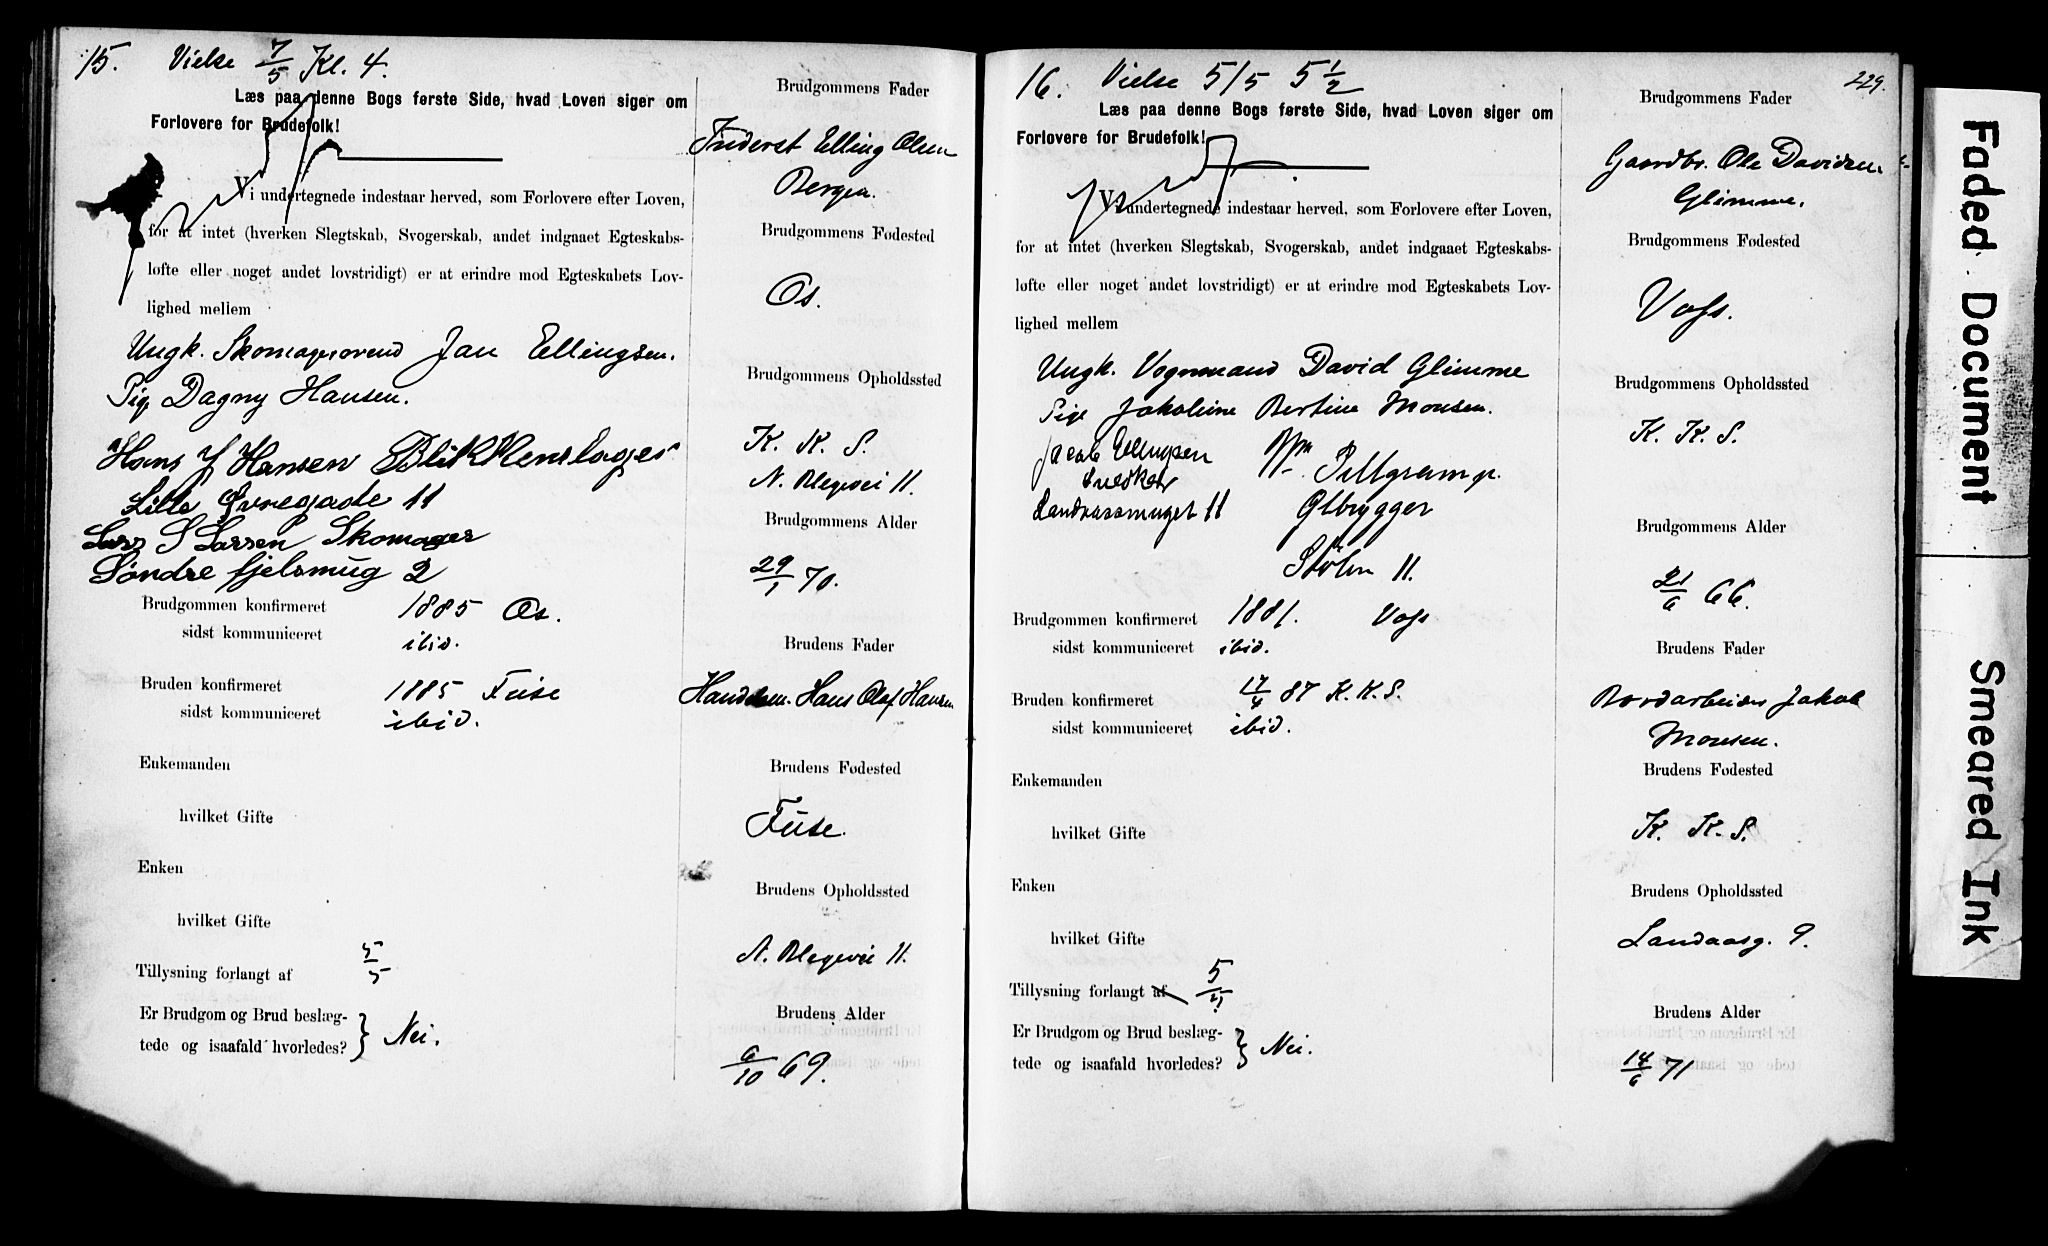 15. Vielse 7/5 Kl. 4.
Læs paa denne Bogs første Side, hvad Loven siger om
Forlovere for Brudefolk!
Vi undertegnede indestaar herved, som Forlovere efter Loven,
for at intet (hverken Slegtskab, Svogerskab, andet indgaaet Egteskabs-
løfte eller noget andet lovstridigt) er at erindre mod Egteskabets Lov-
lighed mellem
Ungk. Skomagersvend Jan Ellingsen.
Pig. Dagny Hansen.
Hans J Hansen Blikkenslager
Lille Øvregade 11
Lars S Larsen Skomager
Søndre fjelsmug 2
Brudgommen konfirmeret 1885 Os.
sidst kommuniceret ibid.
Bruden konfirmeret 1885 Fuse
sidst kommuniceret ibid.
Enkemanden
hvilket Gifte
Enken
hvilket Gifte
Tillysning forlangt af 5/5
Er Brudgom og Brud beslæg-
tede og isaafald hvorledes? } Nei.
Brudgommens Fader
Inderst Elling Olsen
Bergen.
Brudgommens Fødested
Os.
Brudgommens Opholdssted
K. K. S.
N. Blegevei 11.
Brudgommens Alder
29/1 70.
Brudens Fader
Handelsm. Hans Olaf Hansen
Brudens Fødested
Fuse.
Brudens Opholdssted
N. Blegevei 11.
Brudens Alder
9/10 69.
229.
16. Vielse 5/5 5 1/2
Læs paa denne Bogs første Side, hvad Loven siger om
Forlovere for Brudefolk!
Vi undertegnede indestaar herved, som Forlovere efter Loven,
for at intet (hverken Slegtskab, Svogerskab, andet indgaaet Egteskabs-
løfte eller noget andet lovstridigt) er at erindre mod Egteskabets Lov-
lighed mellem
Ungk. Vognmand David Glimme
Pige Jakobine Bertine Monsen.
Jacob Ellingsen
Snedker
Landaassmuget 11
Pillgram jr.
Ølbrygger
Stølen 11.
Brudgommen konfirmeret 1881. Voss
sidst kommuniceret ibid.
Bruden konfirmeret 17/4 87 K.K.S.
sidst kommuniceret ibid.
Enkemanden
hvilket Gifte
Enken
hvilket Gifte
Tillysning forlangt af 5/4
Er Brudgom og Brud beslæg-
tede og isaafald hvorledes? } Nei.
Brudgommens Fader
Gaardbr. Ole Davidsen
Glimme.
Brudgommens Fødested
Voss.
Brudgommens Opholdssted
K. K. S.
Brudgommens Alder
21/6 66.
Brudens Fader
Bordarbeider Jakob
Monsen.
Brudens Fødested
K. K. S.
Brudens Opholdssted
Landaasg. 9.
Brudens Alder
14/6 71
Faded Document
Smeared Ink